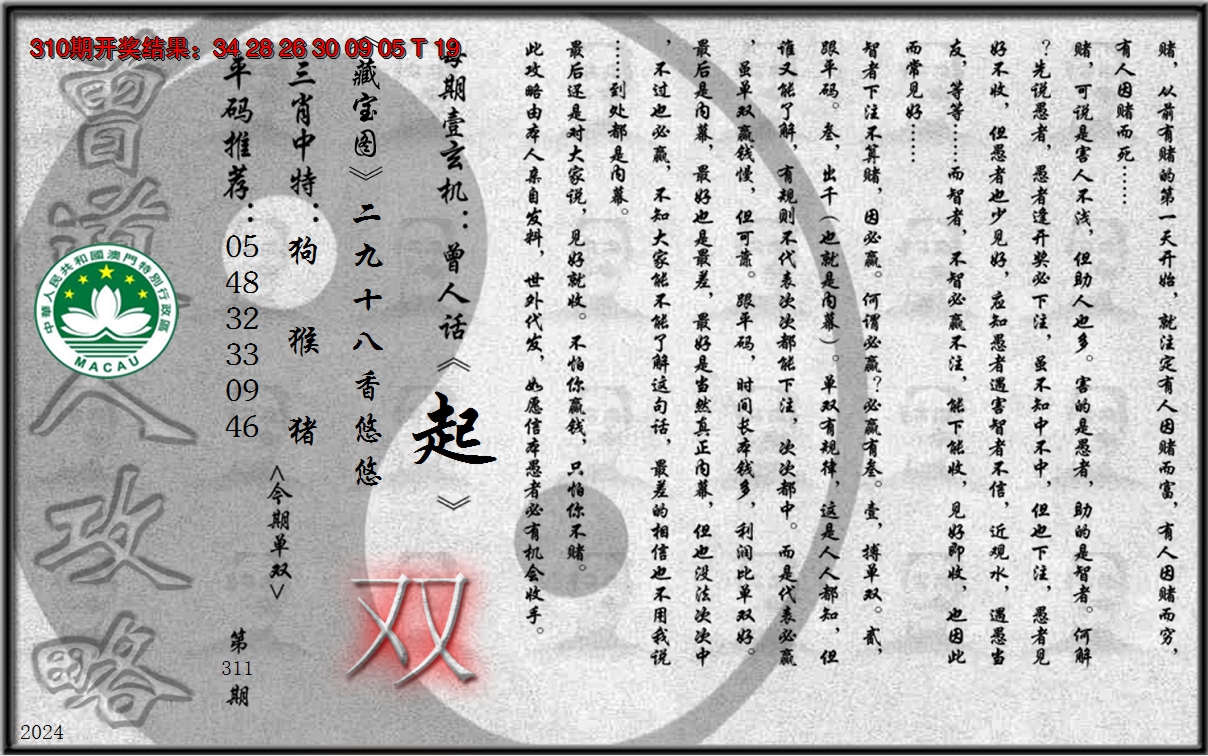 310期开奖结果：34 28 26 30 09 05 T 19
赌，从前有赌的第一天开始，就注定有人因赌而富，有人因赌而穷，
有人因赌而死……
赌，可说是害人不浅，但助人也多。害的是愚者，助的是智者。何解
？先说愚者，愚者逢开奖必下注，虽不知中不中，但也下注，愚者见
好不收，但愚者也少见好，应知愚者遇害智者不信，近观水，遇愚当
友，等等……而智者，不智必赢不注，能下能收，见好即收，也因此
而常见好……
智者下注不算赌，因必赢。何谓必赢？必赢有叁。壹，搏单双。贰，
跟平码。叁，出千（也就是内幕）。单双有规律，这是人人都知，但
谁又能了解，有规则不代表次次都能下注，次次都中。而是代表必赢
，虽单双赢钱慢，但可靠。跟平码，时间长本钱多，利润比单双好。
最后是内幕，最好也是最差，最好是当然真正内幕，但也没法次次中
，不过也必赢，不知大家能不能了解这句话，最差的相信也不用我说
……到处都是内幕。
最后还是对大家说，见好就收。不怕你赢钱，只怕你不赌。
此攻略由本人亲自发料，世外代发，如愿信本愚者必有机会收手。
每期壹玄机：曾人话《起》
《藏宝图》二九十八香悠悠
双
三肖中特：狗 猴 猪
<今期单双>
平码推荐：05 48 32 33 09 46
第311期
曾道人攻略
中華人民共和國澳門特別行政區
MACAU
2024